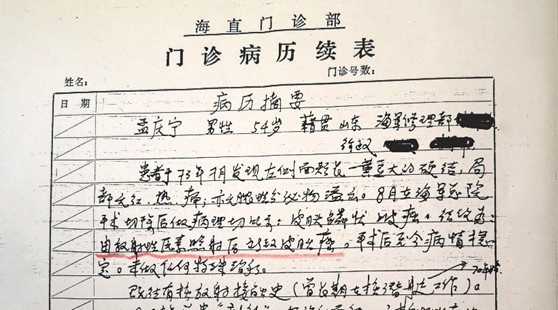 海直门诊部
门诊病历续表
姓名: 门诊号数:
日期 病历摘要
孟庆宁 男性 54岁 籍贯山东 海军修理部
患者于73年7月发现左侧面部长一黄豆大的硬结,局
部无红、热、痛,亦无脓性分泌物溢出。8月在海军医院
手术切除后做病理切片示:皮肤鳞状
由放射性元素照射后引致皮肤癌。手术后至今病情稳
定。未做任何特殊治疗。
70年
既往有核放射接触史(曾长期在核潜艇工作)。